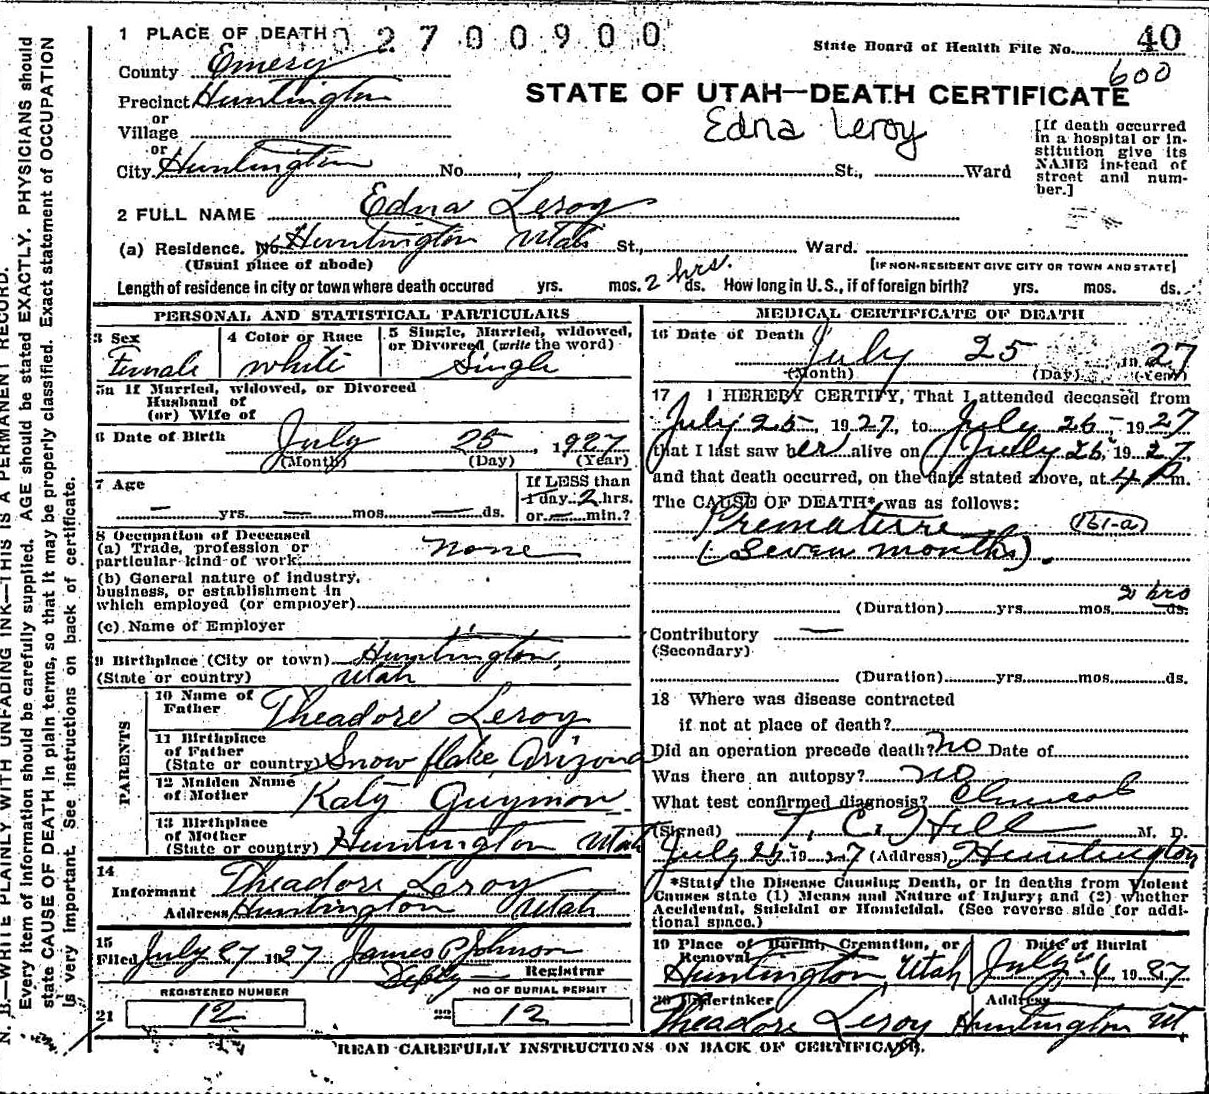 1 PLACE OF DEATH 0 2 7 0 0 9 0 0
State Board of Health File No. 40
600
County Emery
STATE OF UTAH—DEATH CERTIFICATE
Edna Leroy
Precinct Huntington
or
Village
or
City Huntington No. , St., Ward
[If death occurred
in a hospital or in-
stitution give its
NAME instead of
street and num-
ber.]
2 FULL NAME Edna Leroy
(a) Residence. No. Huntington Utah St., Ward.
(Usual place of abode) [IF NON-RESIDENT GIVE CITY OR TOWN AND STATE]
Length of residence in city or town where death occured yrs. mos. 2 hrs. ds. How long in U.S., if of foreign birth? yrs. mos. ds.
PERSONAL AND STATISTICAL PARTICULARS
3 Sex
Female
4 Color or Race
white
5 Single, Married, widowed,
or Divorced (write the word)
Single
5a If Married, widowed, or Divorced
Husband of
(or) Wife of
6 Date of Birth July 25, 1927
(Month) (Day) (Year)
7 Age
— yrs. — mos. — ds.
If LESS than
1 day 2 hrs.
or — min.?
8 Occupation of Deceased
(a) Trade, profession or
particular kind of work none
(b) General nature of industry,
business, or establishment in
which employed (or employer)
(c) Name of Employer
9 Birthplace (City or town) Huntington,
(State or country) Utah
PARENTS
10 Name of
Father Theadore Leroy
11 Birthplace
of Father
(State or country) Snow flake, Arizona
12 Maiden Name
of Mother Katy Guymon
13 Birthplace
of Mother
(State or country) Huntington Utah
14
Informant Theadore Leroy
Address Huntington Utah
15
Filed July 27 1927 James P Johnson
Depty Registrar
REGISTERED NUMBER
21 12
NO OF BURIAL PERMIT
22 12
MEDICAL CERTIFICATE OF DEATH
16 Date of Death July 25 1927
(Month) (Day) (Year)
17 I HEREBY CERTIFY, That I attended deceased from
July 25, 1927, to July 25, 1927
that I last saw her alive on July 25, 1927,
and that death occurred, on the date stated above, at 4 p m.
The CAUSE OF DEATH* was as follows:
Premature 161-a
(Seven months).
2 hrs
(Duration) yrs. mos. ds.
Contributory —
(Secondary)
(Duration) yrs. mos. ds.
18 Where was disease contracted
if not at place of death?
Did an operation precede death? no Date of
Was there an autopsy? no
What test confirmed diagnosis? Clinical
(Signed) T. C. Hill M. D.
July 25 1927 (Address) Huntington
*State the Disease Causing Death, or in deaths from Violent
Causes state (1) Means and Nature of Injury; and (2) whether
Accidental, Suicidal or Homicidal. (See reverse side for addi-
tional space.)
19 Place of Burial, Cremation, or
Removal
Huntington, Utah
Date of Burial
July 1927
20 Undertaker
Theadore Leroy
Address
Huntington Ut
READ CAREFULLY INSTRUCTIONS ON BACK OF CERTIFICATE.
N. B.—WRITE PLAINLY WITH UNFADING INK—THIS IS A PERMANENT RECORD.
Every item of information should be carefully supplied. AGE should be stated EXACTLY. PHYSICIANS should
state CAUSE OF DEATH in plain terms, so that it may be properly classified. Exact statement of OCCUPATION
is very important. See instructions on back of certificate.